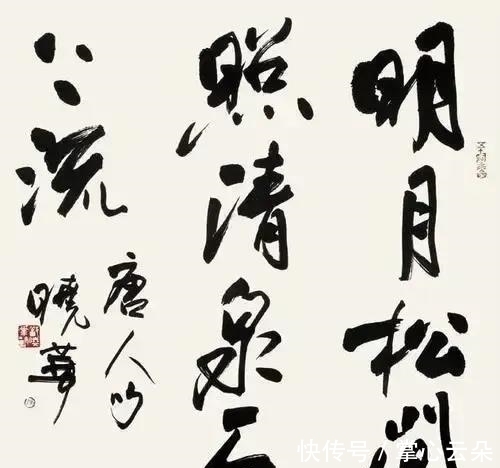 明月松
照清泉石
上流
唐人句
曉華
快传号 / 掌心云朵